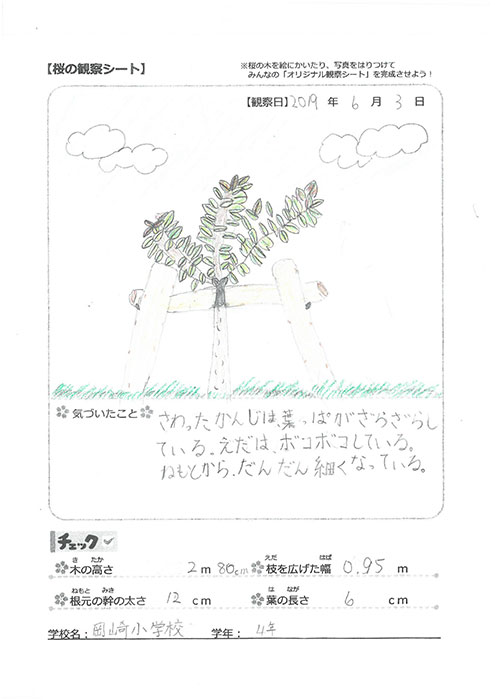 【桜の観察シート】
※桜の木を絵にかいたり、写真をはりつけて
みんなの「オリジナル観察シート」を完成させよう！
【観察日】2019 年 6 月 3 日
気づいたこと
さわったかんじは、葉っぱがざらざらし
ている。えだは、ボコボコしている。
ねもとから、だんだん細くなっている。
チェック
木の高さ 2 m 80cm
きたか
枝を広げた幅 0.95 m
えだ はば
根元の幹の太さ 12 cm
ねもと みき
葉の長さ 6 cm
は なが
学校名：岡崎小学校 学年：4年